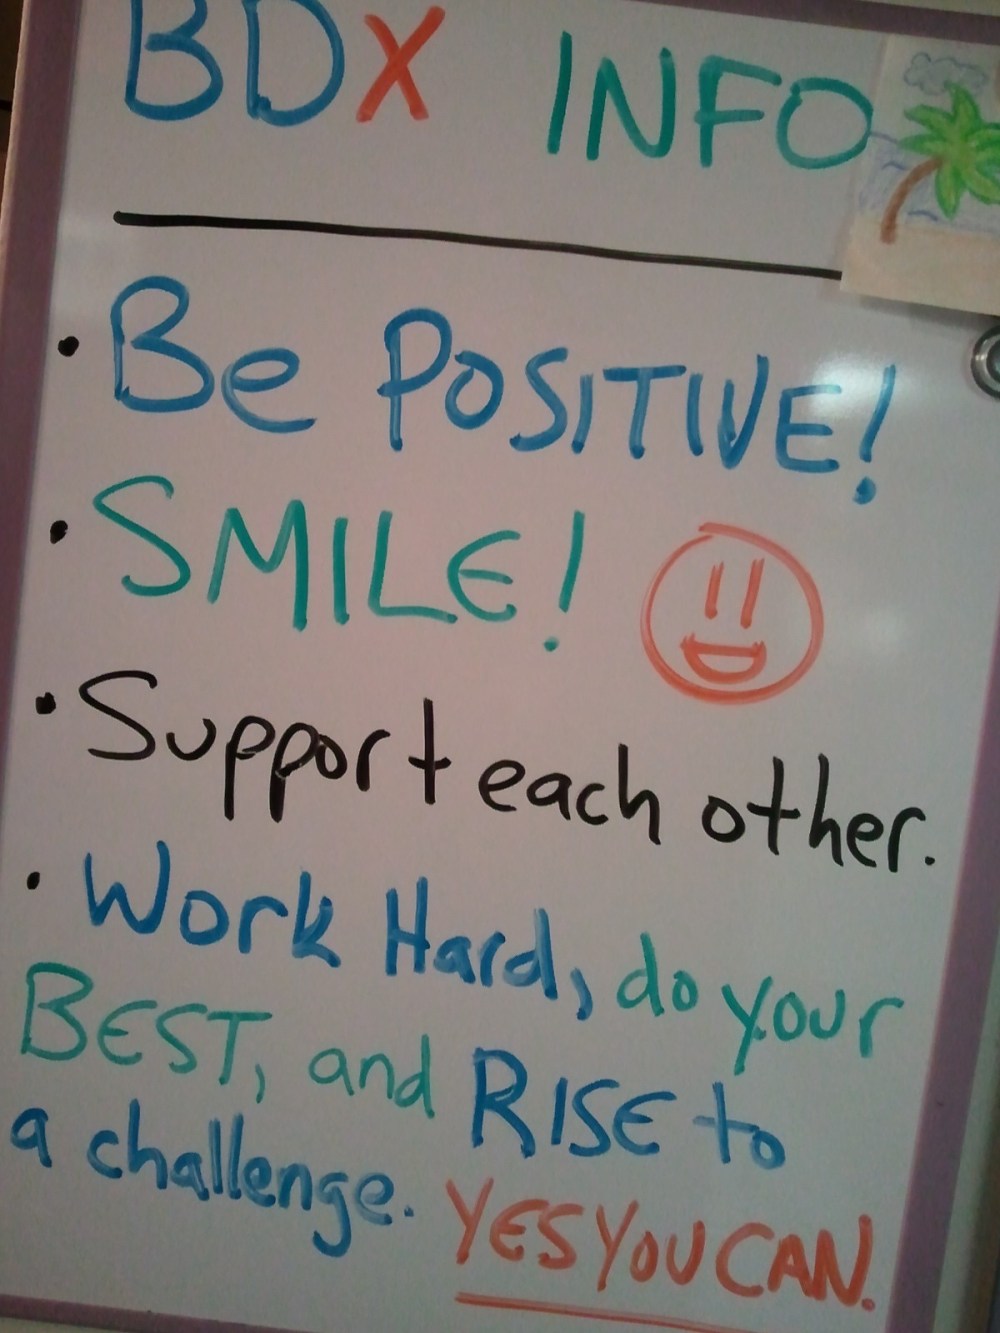 BDX INFO
• Be POSITIVE!
• SMILE!
• Support each other.
• Work Hard, do your
BEST, and RISE to
a challenge. YES YOU CAN.